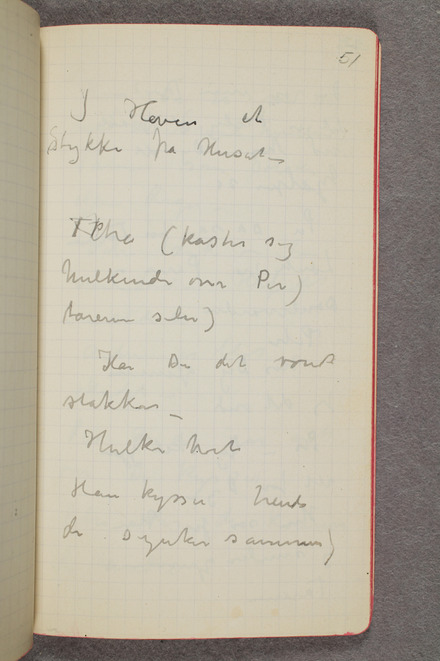 51
I Haven et
Stykke fra Huset –
Thea (kaster sig
hulkende over Per)
tarerne
Har Du det vondt
stakkar –
Hulker
Han kysser hende
de synker sammen)